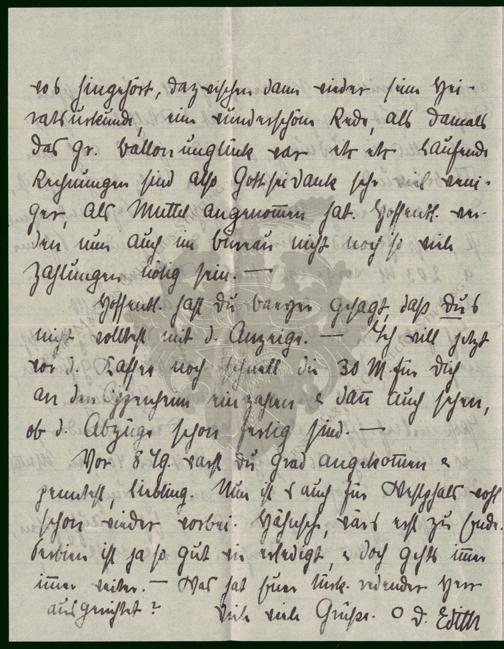 wo's hingehört, dazwischen dann wieder sein Hei-
ratsurkunde, eine wunderschöne Rede, als damals
das gr. Ballonunglück war etc etc Laufende
Rechnungen sind also Gottseidank sehr viel weni-
ger, als Muttel angenommen hat. Hoffentl. wer-
den nun auch im Bureau nicht noch so viele
Zahlungen nötig sein. —
Hoffentl. hast du gesagt, daß Du's
nicht wolltest mit d. Anzeige. — Ich will jetzt
vor d. Kaffee noch schnell die 30 M für dich
an den einzahlen & dann auch sehen,
ob d. Abzüge schon fertig sind. —
Vor 8 Tg. warst du grad angekommen &
penntest, Liebling. Nun ist's auch für Westphals wohl
schon wieder vorbei. wär's erst zu Ende.
ist ja so gut wie erledigt, & doch gehts immer
immer weiter. — Was hat Euer türk. redender Herr
ausgerichtet? Viele viele Grüsse. O d. Edith